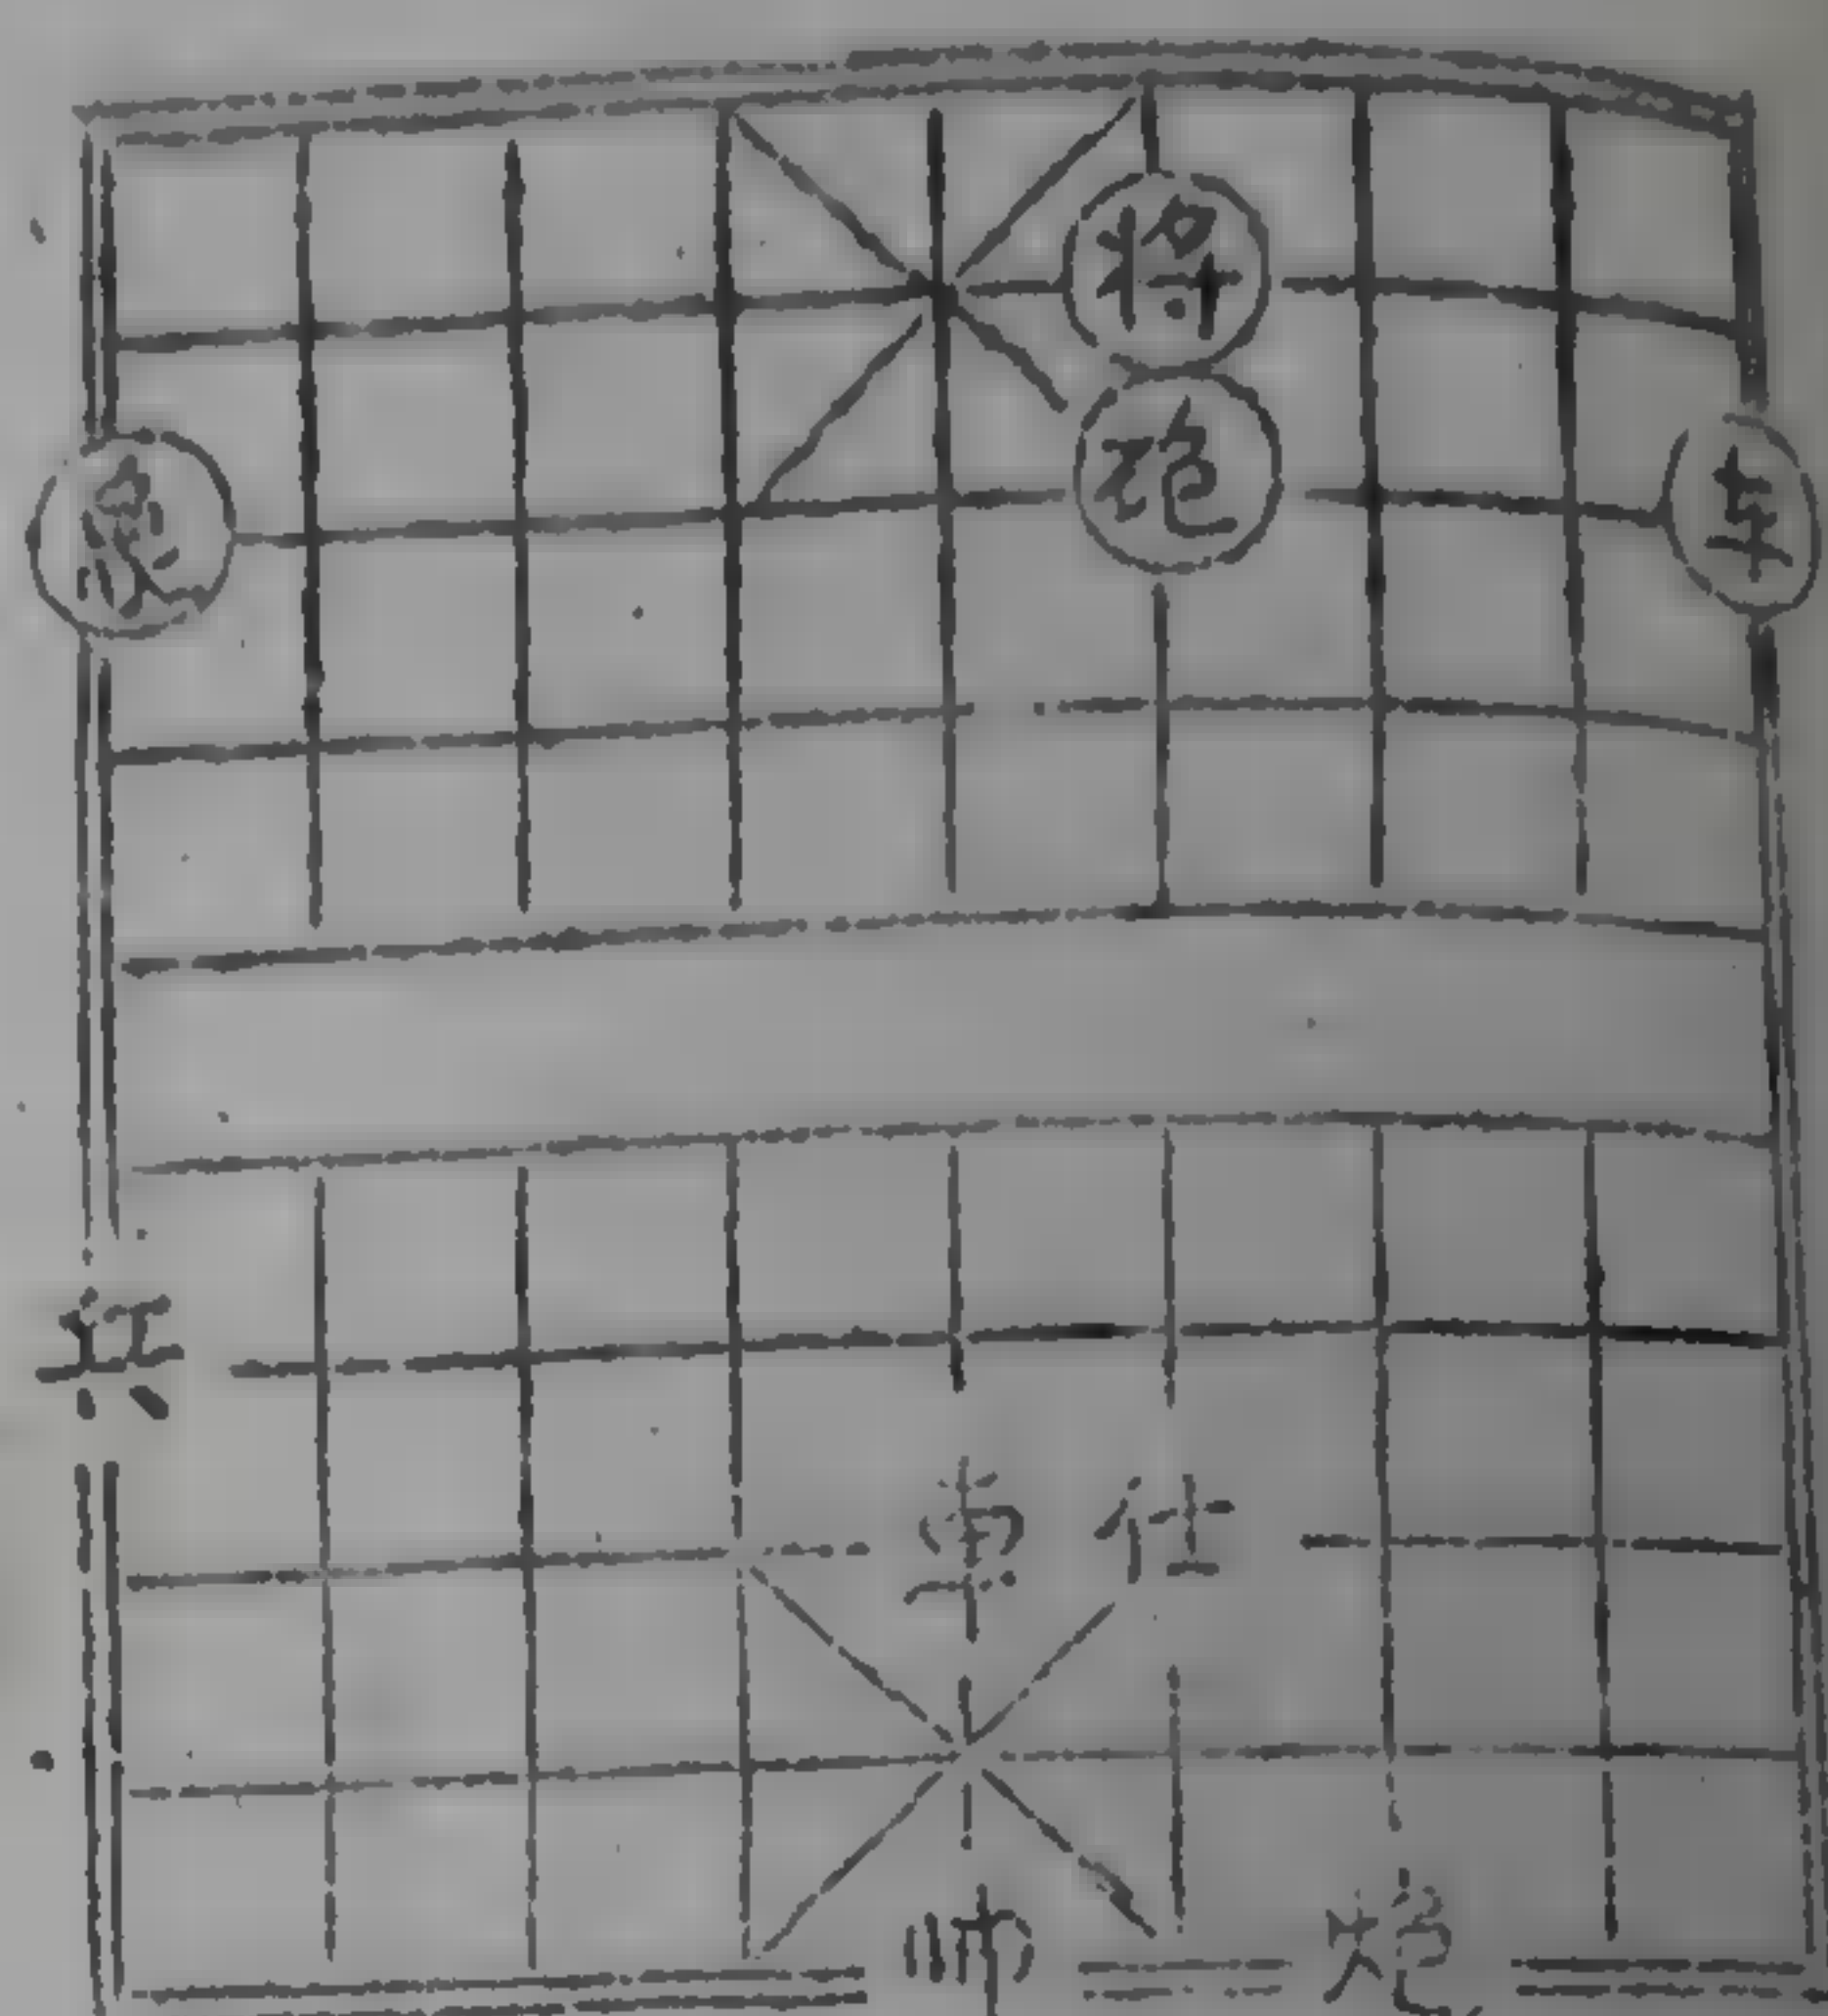 将
象 砲 车
兵
車 仕
帅 炮